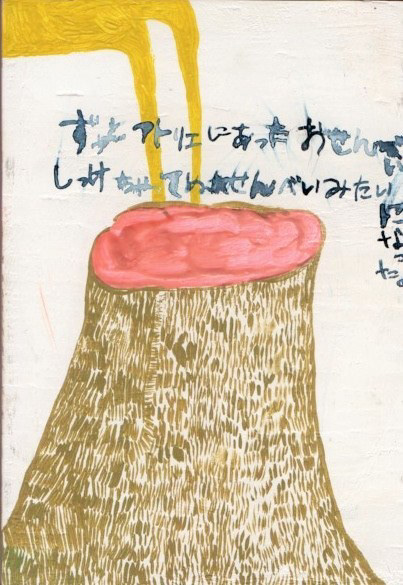 ずっとアトリエにあったおせんべい
しっけちゃってぬれせんべいみたい
になった。